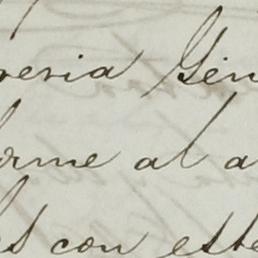 reria Gen
orme al a
es con este